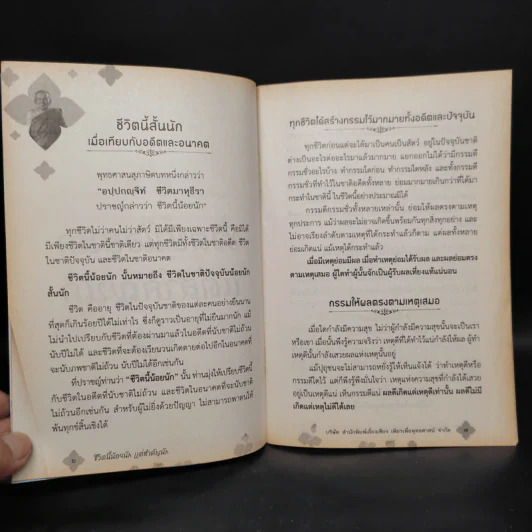 ชีวิตนี้สั้นนัก
เมื่อเทียบกับอดีตและอนาคต
พุทธศาสนสุภาษิตบทหนึ่งกล่าวว่า
"อปฺปกญฺจิทํ ชีวิตมาหุธีรา
ปราชญ์กล่าวว่า ชีวิตนี้น้อยนัก"
ทุกชีวิตไม่ว่าคนไม่ว่าสัตว์ มิได้มีเพียงเฉพาะชีวิตนี้ คือมิได้
มีเพียงชีวิตในชาตินี้ชาติเดียว แต่ทุกชีวิตมีทั้งชีวิตในชาติอดีต ชีวิต
ในชาติปัจจุบัน และชีวิตในชาติอนาคต
ชีวิตนี้น้อยนัก นั้นหมายถึง ชีวิตในชาติปัจจุบันน้อยนัก
สั้นนัก
ชีวิต คืออายุ ชีวิตในปัจจุบันชาติของแต่ละคนอย่างยืนนาน
ที่สุดก็เกินร้อยปีได้ไม่เท่าไร ซึ่งก็ดูราวเป็นอายุที่ไม่ยืนมากนัก แม้
ไม่นำไปเปรียบกับชีวิตที่ต้องผ่านมาแล้วในอดีตที่นับชาติไม่ถ้วน
นับปีไม่ได้ และชีวิตที่จะต้องเวียนวนเกิดตายต่อไปอีกในอนาคตที่
จะนับภพชาติไม่ถ้วน นับปีไม่ได้อีกเช่นกัน
ที่ปราชญ์ท่านว่า "ชีวิตนี้น้อยนัก" นั้น ท่านมุ่งให้เปรียบชีวิตนี้
กับชีวิตในอดีตที่นับชาติไม่ถ้วน และชีวิตในอนาคตที่จะนับชาติ
ไม่ถ้วนอีกเช่นกัน สำหรับผู้ไม่ยิ่งด้วยปัญญา ไม่สามารถพาตนให้
พ้นทุกข์สิ้นเชิงได้
๖ ชีวิตนี้น้อยนัก แต่สำคัญนัก
ทุกชีวิตได้สร้างกรรมไว้มากมายทั้งอดีตและปัจจุบัน
ทุกชีวิตก่อนแต่จะได้มาเป็นคนเป็นสัตว์ อยู่ในปัจจุบันชาติ
ต่างเป็นอะไรต่ออะไรมาแล้วมากมาย แยกออกไม่ได้ว่ามีกรรมดี
กรรมชั่วอะไรบ้าง ทำกรรมใดก่อน ทำกรรมใดหลัง และทั้งกรรมดี
กรรมชั่วที่ทำไว้ในชาติอดีตทั้งหลาย ย่อมมากมายเกินกว่าที่ได้มา
กระทำในชาตินี้ ในชีวิตนี้อย่างประมาณมิได้
กรรมดีกรรมชั่วทั้งหลายเหล่านั้น ย่อมให้ผลตรงตามเหตุ
ทุกประการ แม้ว่าผลจะไม่อาจเกิดขึ้นพร้อมกันทุกสิ่งทุกอย่าง และ
ไม่อาจเรียงลำดับตามเหตุที่ได้กระทำแล้วก็ตาม แต่ผลทั้งหลาย
ย่อมเกิดแน่ แม้เหตุได้กระทำแล้ว
เมื่อมีเหตุย่อมมีผล เมื่อทำเหตุย่อมได้รับผล และผลย่อมตรง
ตามเหตุเสมอ ผู้ใดทำผู้นั้นจักเป็นผู้รับผลเที่ยงแท้แน่นอน
กรรมให้ผลตรงตามเหตุเสมอ
เมื่อใดกำลังมีความสุข ไม่ว่าผู้กำลังมีความสุขนั้นจะเป็นเรา
หรือเขา เมื่อนั้นพึงรู้ความจริงว่า เหตุดีที่ได้ทำไว้แน่กำลังให้ผล ผู้ทำ
เหตุดีนั้นกำลังเสวยผลแห่งเหตุนั้นอยู่
แม้ปุถุชนจะไม่สามารถหยั่งรู้ให้เห็นแจ้งได้ ว่าทำเหตุดีหรือ
กรรมดีใดไว้ แต่ก็พึงรู้พึงมั่นใจว่า เหตุแห่งความสุขที่กำลังได้เสวย
อยู่เป็นเหตุดีแน่ เป็นกรรมดีแน่ ผลดีเกิดแต่เหตุดีเท่านั้น ผลดีไม่มี
เกิดแต่เหตุไม่ดีได้เลย
บริษัท สำนักพิมพ์เลี่ยงเชียง เพียรเพื่อพุทธศาสน์ จำกัด ๗